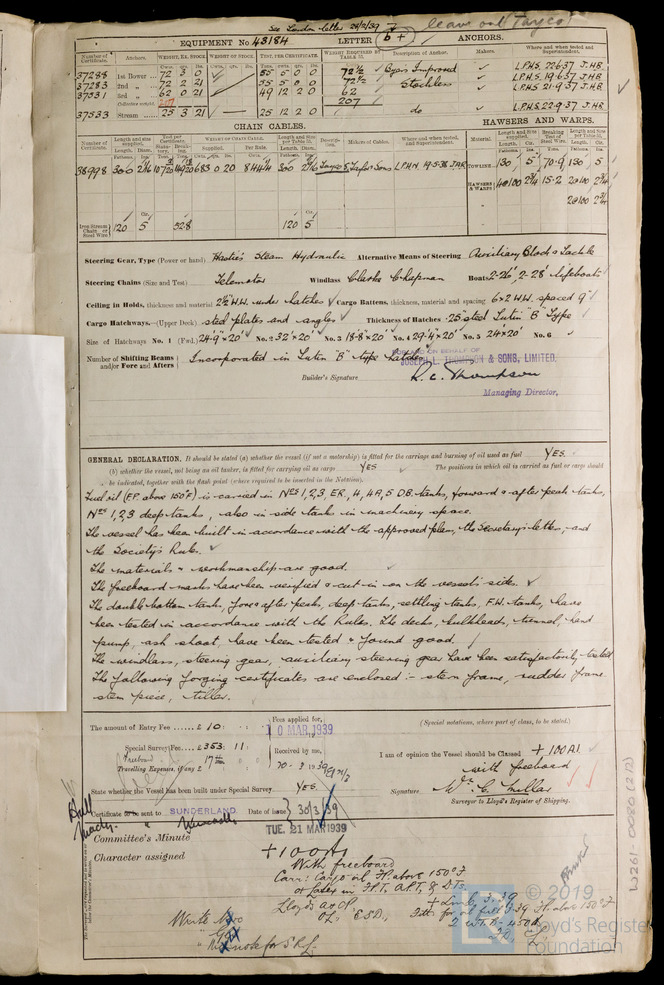 See London letter 28/2/39
leave out (Tayco)
EQUIPMENT No. 43184 LETTER b + ANCHORS.
Number of Certificate. Anchors. Weight, Ex. Stock. Weight of Stock. Test, per Certificate. Weight Required by Table 53. Description of Anchor. Makers. Where and when tested and Superintendent.
37288 1st Bower 72 3 0 55 5 0 0 72½ Byers Improved L.P.H.S. 22.6.37 J.H.B.
37283 2nd 72 2 21 55 5 0 0 72½ Stockless L.P.H.S. 19.6.37 J.H.B.
37531 3rd 62 0 21 49 12 2 0 62 L.P.H.S. 21.9.37 J.H.B.
Collective weight 207 207
37533 Stream 25 3 21 25 12 2 0 do L.P.H.S. 22.9.37 J.H.B.
CHAIN CABLES. HAWSERS AND WARPS.
Number of Certificate. Length and size supplied. Test per Certificate. Weight of Chain Cable. Length and Size per Table 53. Description. Makers of Cables. Where and when tested, and Superintendent. Material. Length and size supplied. Breaking Test of Steel Wire. Length and Size per Table 53.
38998 300 683 0 20 300 Tayco S. Taylor & Sons L.P.H.N. 19.5.38 J.A.R. TOWLINE 130 5 70.9 130 5
HAWSERS & WARPS 4@100 2¾ 15.2 2@100 2¾
2@100 2¼
Iron Stream Chain or Steel Wire 120 5 52.8 120 5
Steering Gear, Type (Power or hand) Hastie's Steam Hydraulic Alternative Means of Steering Auxiliary Block & Tackle
Steering Chains (Size and Test) Telemotor Windlass Clarke Chapman Boats 2-26', 2-28' lifeboats
Ceiling in Holds, thickness and material 2½" W.W. under hatches Cargo Battens, thickness, material and spacing 6×2 W.W. spaced 9"
Cargo Hatchways.—(Upper Deck) steel plates and angles Thickness of Hatches .25" steel Lutin "B" Type
Size of Hatchways No. 1 (Fwd.) 24'-9"×20' No. 2 32'×20' No. 3 18'-8"×20' No. 4 29'-4"×20' No. 5 24'×20' No. 6
Number of Shifting Beams and/or Fore and Afters Incorporated in Lutin "B" type hatches
FOR AND ON BEHALF OF
JOSEPH L. THOMPSON & SONS, LIMITED.
Builder's Signature R. C. Thompson
Managing Director,
GENERAL DECLARATION. It should be stated (a) whether the vessel (if not a motorship) is fitted for the carriage and burning of oil used as fuel YES.
(b) whether the vessel, not being an oil tanker, is fitted for carrying oil as cargo YES The positions in which oil is carried as fuel or cargo should
be indicated, together with the flash point (where required to be inserted in the Notation).
Fuel oil (F.P. above 150°F) is carried in Nos 1, 2, 3, E.R., 4, 4A, 5 D.B. tanks, forward & after peak tanks,
Nos 1, 2, 3 deep tanks, also in side tanks in machinery space.
The vessel has been built in accordance with the approved plans, the Secretary's letters, and
the Society's Rules.
The materials & workmanship are good.
The freeboard marks have been verified & cut in on the vessel's sides.
The double bottom tanks, fore & after peaks, deep tanks, settling tanks, F.W. tanks, have
been tested in accordance with the Rules. The decks, bulkheads, tunnel, hand
pump, ash shoot, have been tested & found good.
The windlass, steering gear, auxiliary steering gear have been satisfactorily tested
The following forging certificates are enclosed :- stern frame, rudder frame
stem piece, tiller.
The amount of Entry Fee ...... £ 10 : Fees applied for, (Special notations, where part of class, to be stated.)
10 MAR. 1939
Special Survey Fee.... £ 353 : 11 : Received by me, I am of opinion the Vessel should be Classed + 100A1
Freeboard 17
Travelling Expenses, if any £ 30.3.1939 with freeboard
State whether the Vessel has been built under Special Survey YES. Signature Wm. C. Millar
Surveyor to Lloyd's Register of Shipping.
Certificate to be sent to SUNDERLAND Date of issue 30/3/39
Newcastle
Committee's Minute TUE. 21 MAR 1939
Character assigned +100A1
With freeboard
Carr: Cargo oil F.P. above 150°F
in F.P.T., A.P.T., & D.Ts.
Lloyd's A & CP. + LMC 3.39
DF. ESD. Fitted for oil fuel 3.39 F.P. above 150°F
Write
note for S.R.L.
W261-0080 (2/2)
© 2019
Lloyd's Register
Foundation